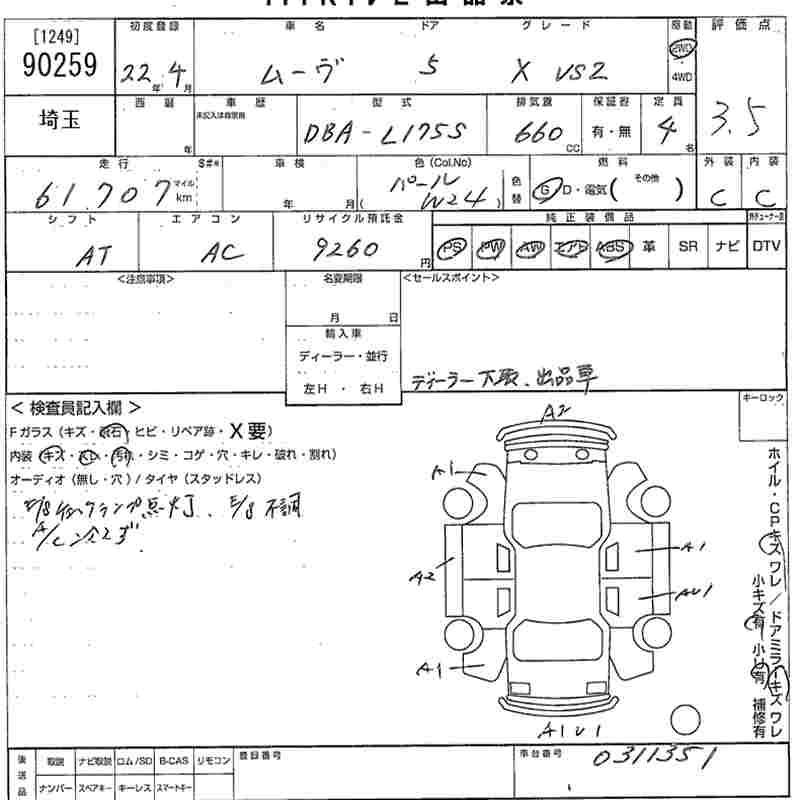 [1249]
90259
初度登録
22年 4月
車名
ムーヴ
ドア
5
グレード
X VS2
駆動
2WD
4WD
評価点
3.5
埼玉
西暦
年
車歴
未記入は自家用
型式
DBA-L175S
排気量
660 CC
保証書
有・無
定員
4 名
走行
61,707
マイル
km
S#*
車検
年 月
色(Col.No)
パール
( W24 )
色替
燃料
G・D・電気( その他 )
外装
C
内装
C
シフト
AT
エアコン
AC
リサイクル預託金
9260 円
純正装備品
PS PW AW エアB ABS 革 SR ナビ
DTV
<注意事項>
名変期限
月 日
輸入車
ディーラー・並行
左H ・ 右H
<セールスポイント>
ディーラー下取、出品車
キーロック
< 検査員記入欄 >
Fガラス(キズ・飛石・ヒビ・リペア跡・X要)
内装(キズ・スレ・汚れ・シミ・コゲ・穴・キレ・破れ・割れ)
オーディオ(無し・穴)/タイヤ(スタッドレス)
点灯、E/g不調
A2
A1
A2
A1
A1
AU1
A1U1
ホイル・CPキズ ワレ/ドアミラーキズ ワレ
小キズ有 小U有 補修有
後送品
取説 ナビ取説 ロム/SD B-CAS リモコン
ナンバー スペアキー キーレス スマートキー
登録番号
車台番号
0311351